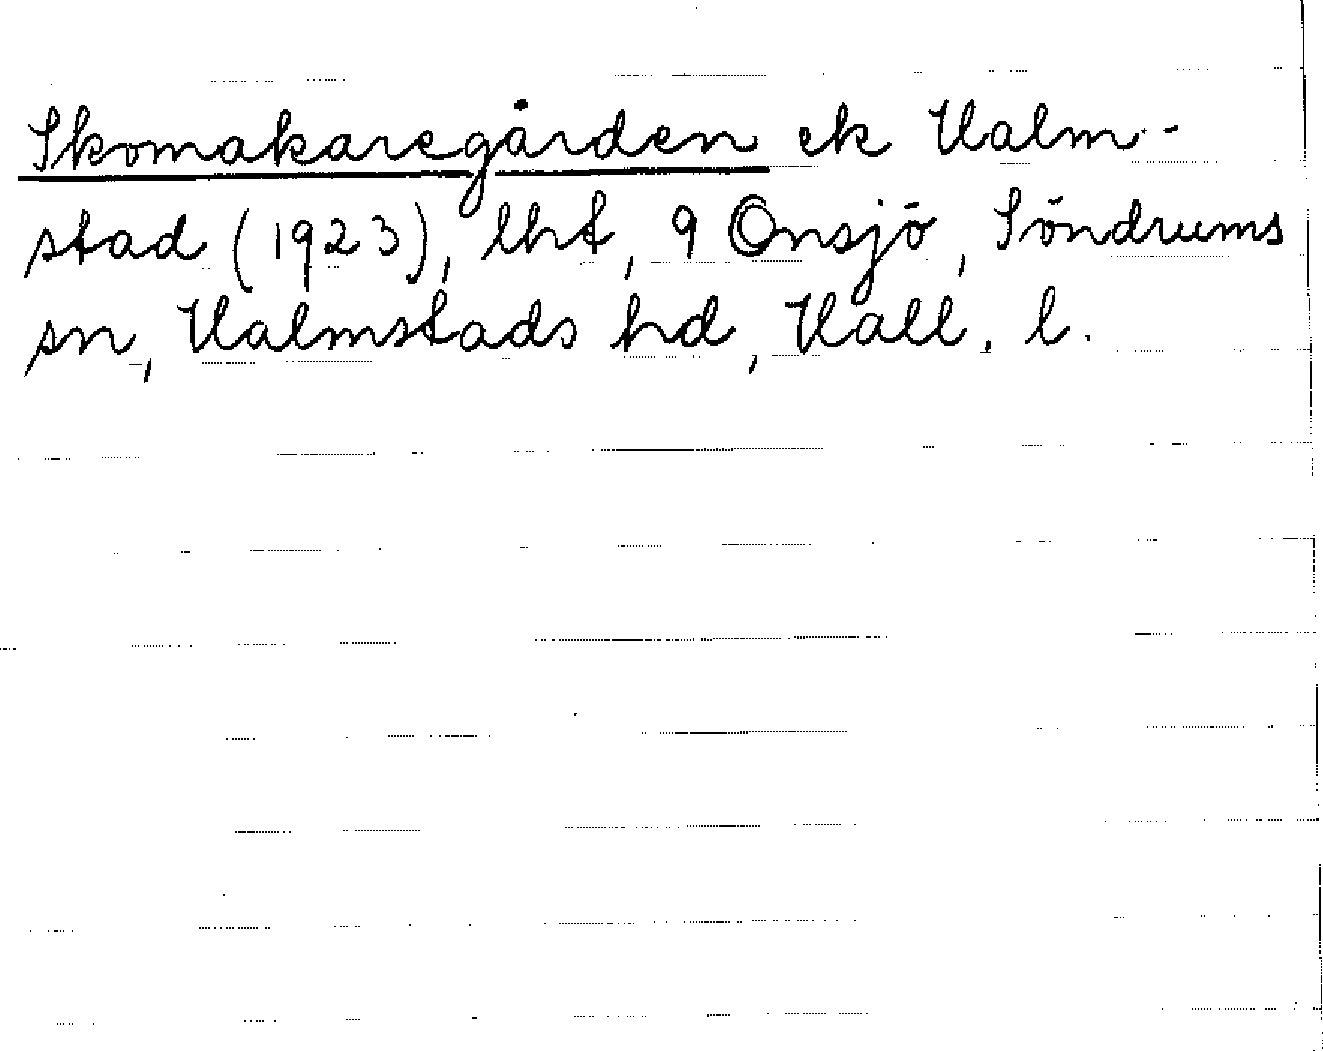 Skomakaregården ek Halm-
stad (1923), lht, 9 Onsjö, Söndrums
sn, Halmstads hd, Hall. l.